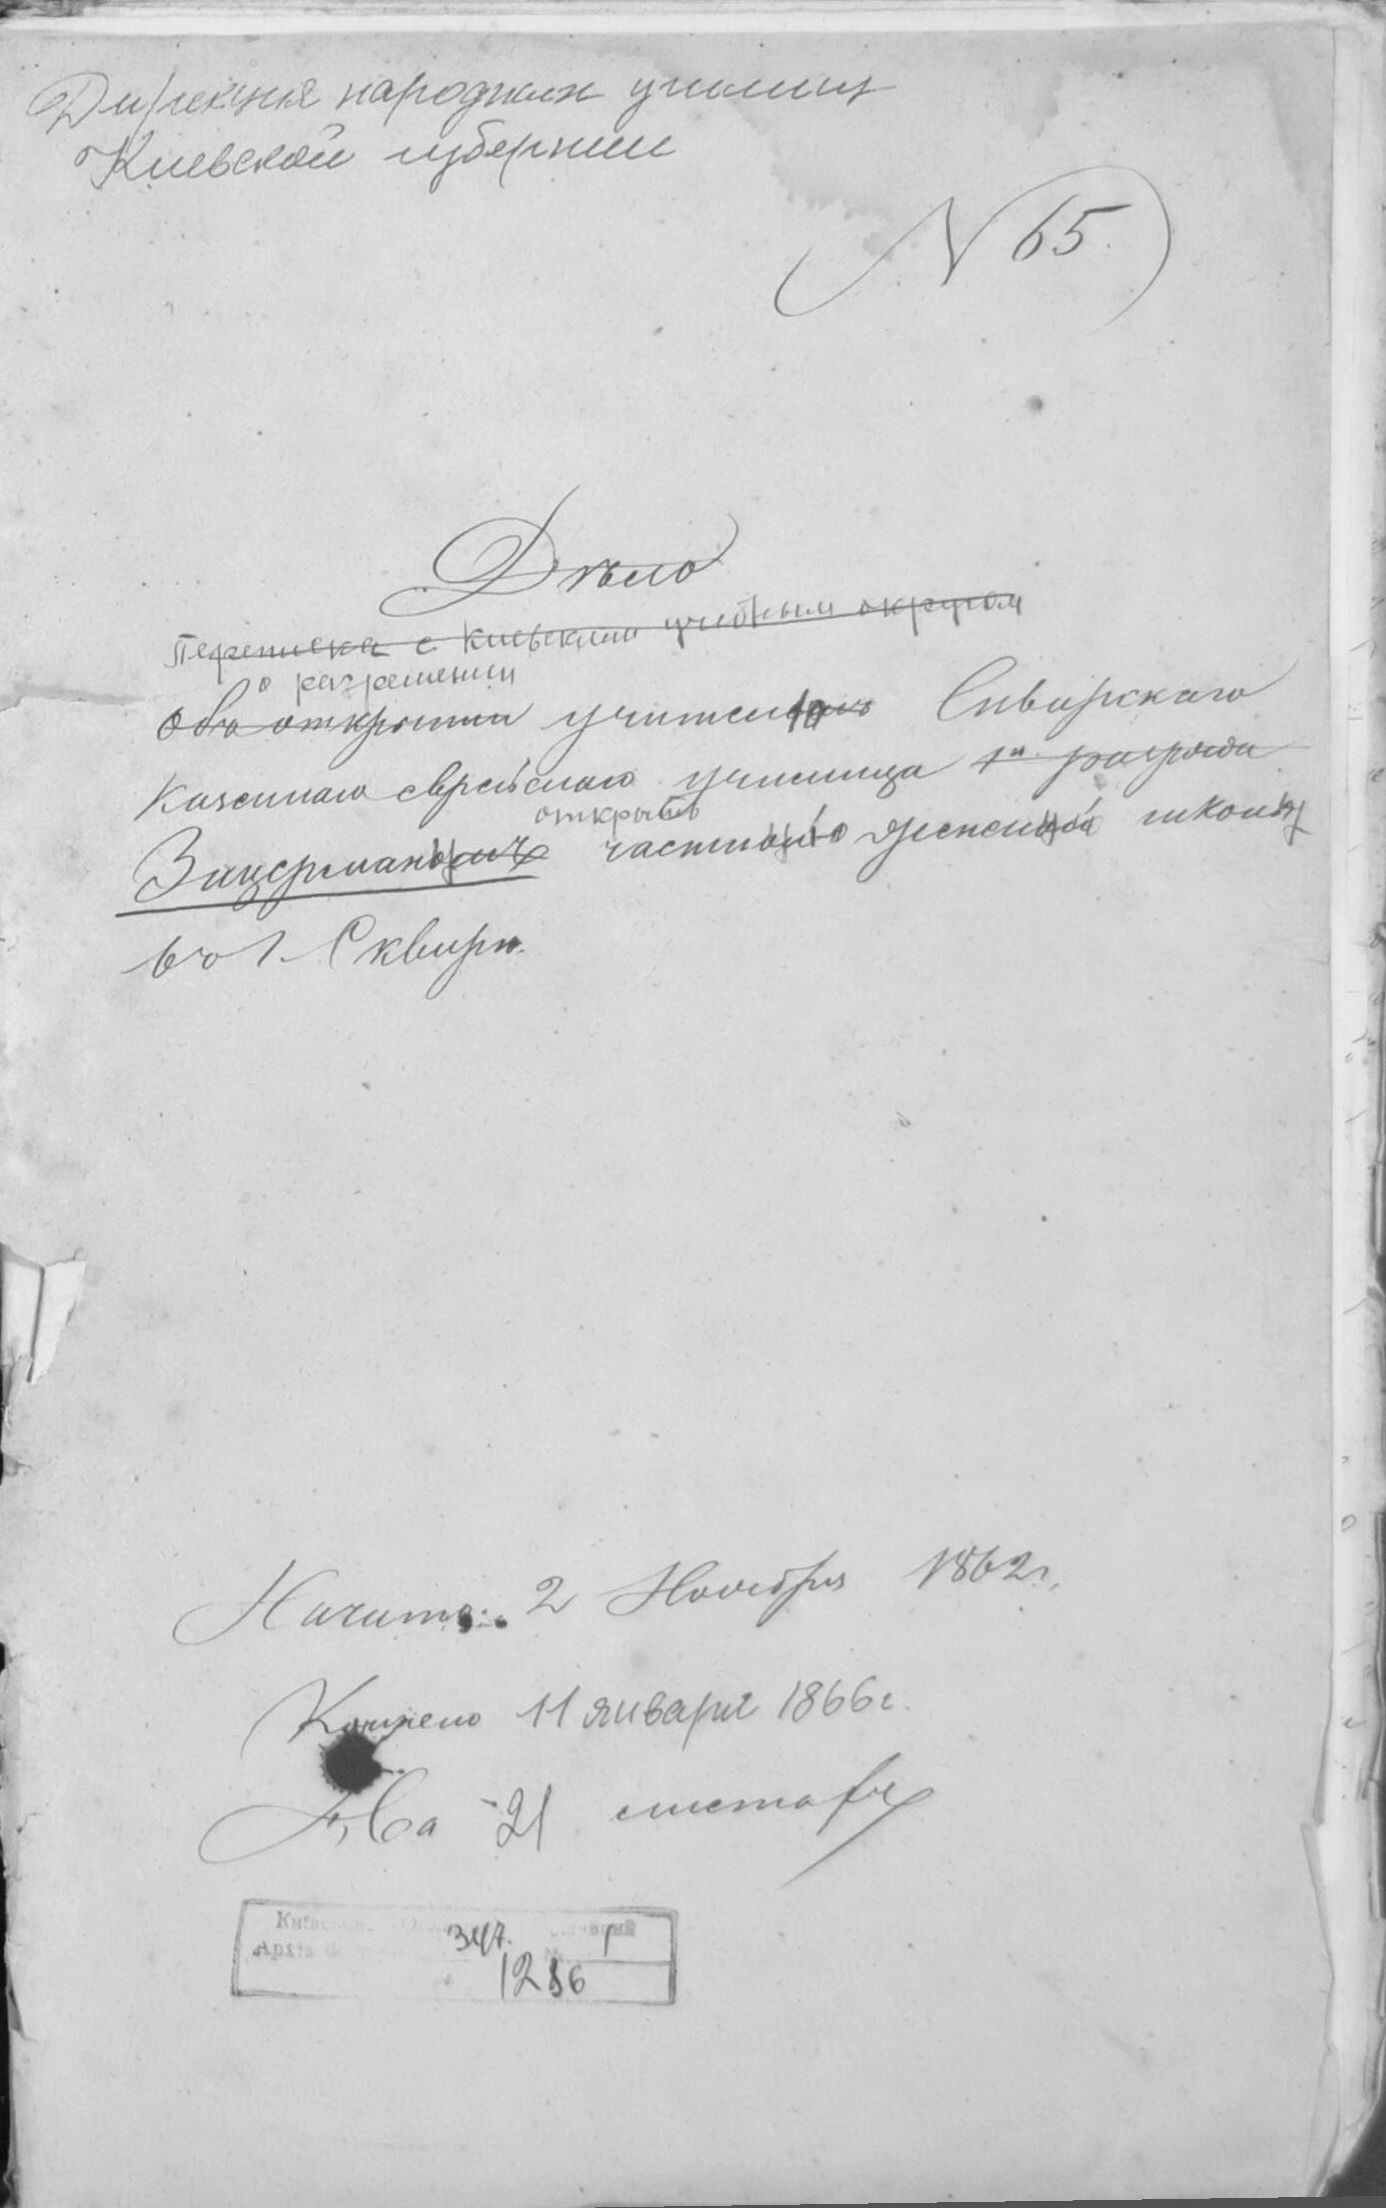 Дирекция народных училищ
Киевской губернии
N 65.
Дѣло
Переписка с Киевским учебным округом
о разрешении
Объ открытии учителю Сквирскаго
Казеннаго еврейскаго училища 1го разряда
открыть
Зицерманну частную женскую школу
въ г. Сквирѣ.
Начато: 2 Ноября 1862 г.
Кончено 11 января 1866 г.
На 21 листах
347. 1
1286